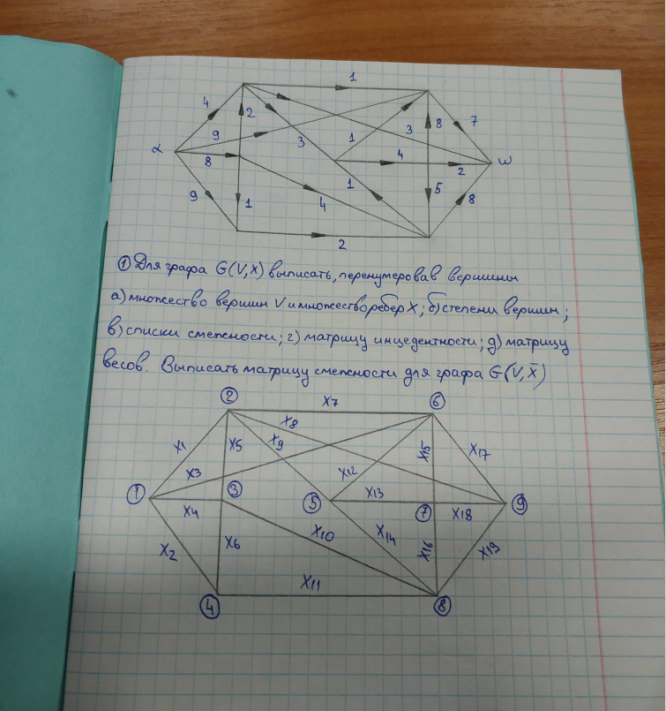 1
4
2
7
9
3
1
3
8
α
8
4
2
ω
1
9
1
4
5
8
2
① Для графа G(V,X) выписать, перенумеровав вершины
а) множество вершин V и множество ребер X; б) степени вершин;
в) списки смежности; г) матрицу инцедентности; д) матрицу
весов. Выписать матрицу смежности для графа G(V,X̄)
② X7 ⑥
X8
X1 X5 X9 X15 X17
X3 X12
① ③ ⑤ X13 ⑨
X4 ⑦ X18
X10 X14
X2 X6 X16 X19
X11
④ ⑧